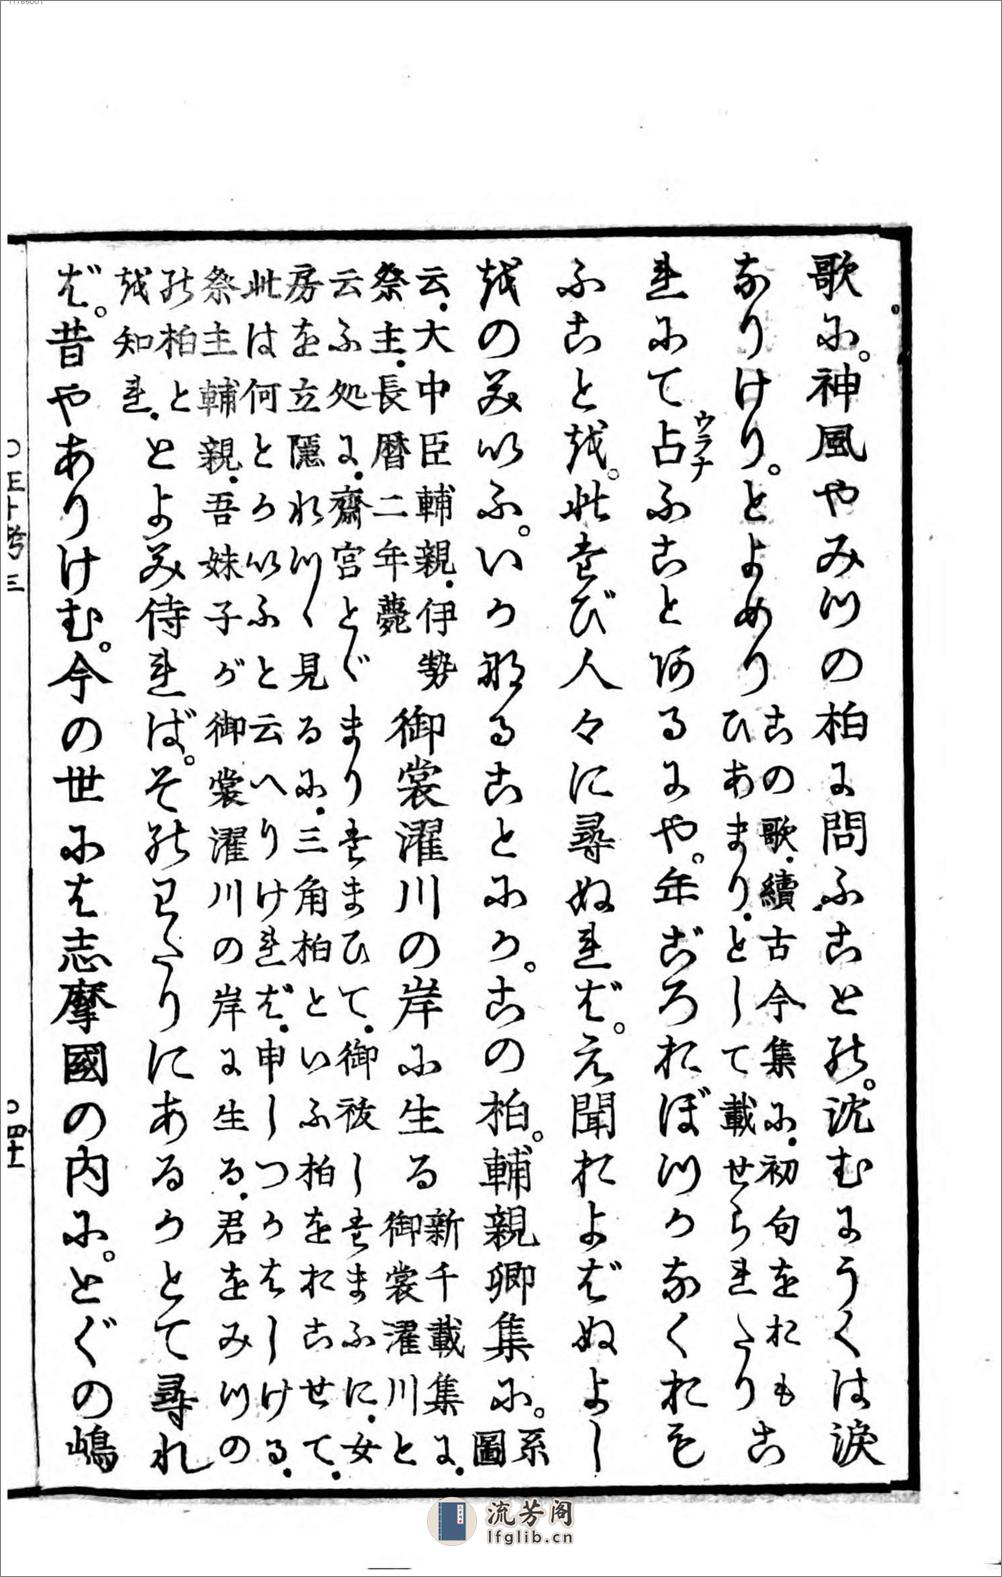 歌に。神風やみつの柏に問ふことの。沈むにうくは涙
なりけり。とよめり
この歌。續古今集に。初句をおもこ
ひあまり。として載せられたり
れにて占ふことあるにや。年ごろおぼつかなくおも
ウラナ
ふことを。此たび人々に尋ぬれど。え聞およばぬよし
をのみいふ。いかなることにか。この柏。輔親卿集に。
系圖
云。大中臣輔親。伊勢
祭主。長暦二年薨
御裳濯川の岸に生る
新千載集に。
御裳濯川と
云ふ処に。齋宮とゞまりたまひて。御祓したまふに。女
房を立隱れつゝ見るに。三角柏といふ柏をおこせて。
此は何とかいふと云へりければ。申しつかはしける。
祭主輔親。吾妹子が御裳濯川の岸に生る。君をみつの
の柏と
を知れ。
とよみ侍れば。そのわたりにあるかとて尋れ
ど。昔やありけむ。今の世には志摩國の内に。とぐの嶋
○正卜考三
○四十